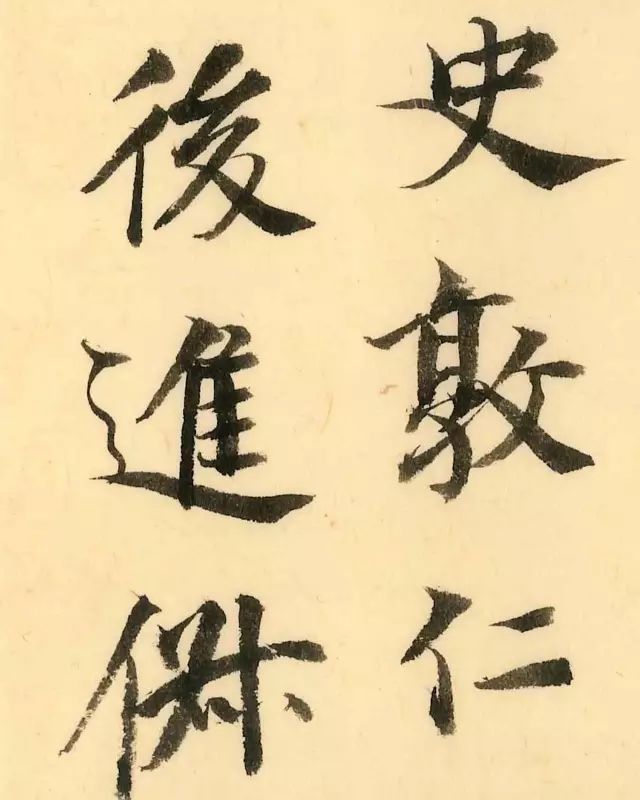 史敦仁
後進